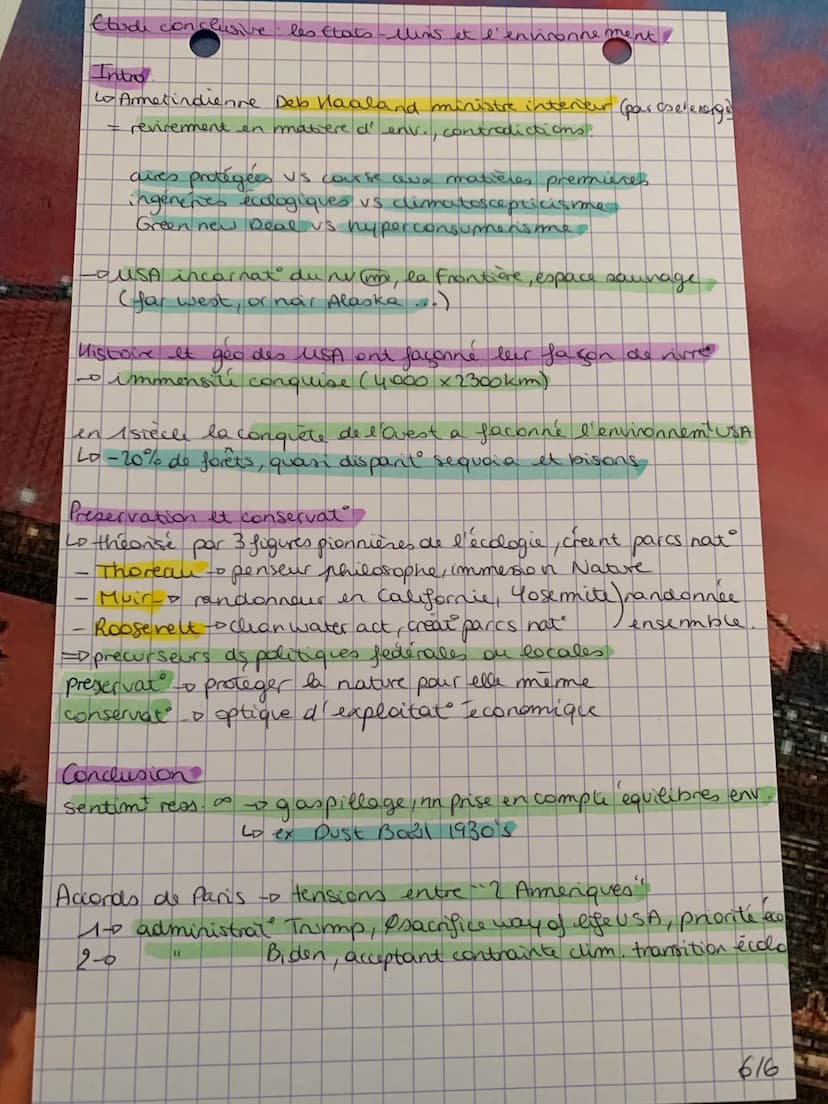 Etude conclusive : les Etats-Unis et l'environnement.
Intro
↳ Amerindienne Deb Haaland ministre interieur (parcs et energi
= revirement en matière d'env., contradictions.
aires protégées vs course aux matières premières
ingénéries écologiques vs climatoscepticisme
Green new Deal vs hyperconsumérisme
→ USA incarnat° du nv (m), la Frontière, espace sauvage
(far west, or noir Alaska ...)
Histoire et géo des USA ont façonné leur façon de vivre
→ immensité conquise (4000 x 2300km)
en 1 siècle, la conquête de l'Ouest a façonné l'environnemt USA
↳ -20% de forêts, quasi disparit° sequoia et bisons,
Preservation et conservat°
↳ théorisé par 3 figures pionnières de l'écologie, créent parcs nat°
- Thoreau → penseur philosophe, immersion Nature
- Muir → randonneur en Californie, Yosemite) randonnée
- Roosevelt → clean water act, créat° parcs nat° ) ensemble.
⇒ précurseurs ds politiques fédérales ou locales
préservat° → protéger la nature pour elle même
conservat° → optique d'exploitat° économique
Conclusion
sentimt ress. ∞ → gaspillage, nn prise en compte équilibres env.
↳ ex Dust Bowl 1930's
Accords de Paris → tensions entre "2 Ameriques"
1→ administrat° Trump, sacrifice way of life USA, priorité éco
2→ " Biden, acceptant contrainte clim. transition écolo
6/6